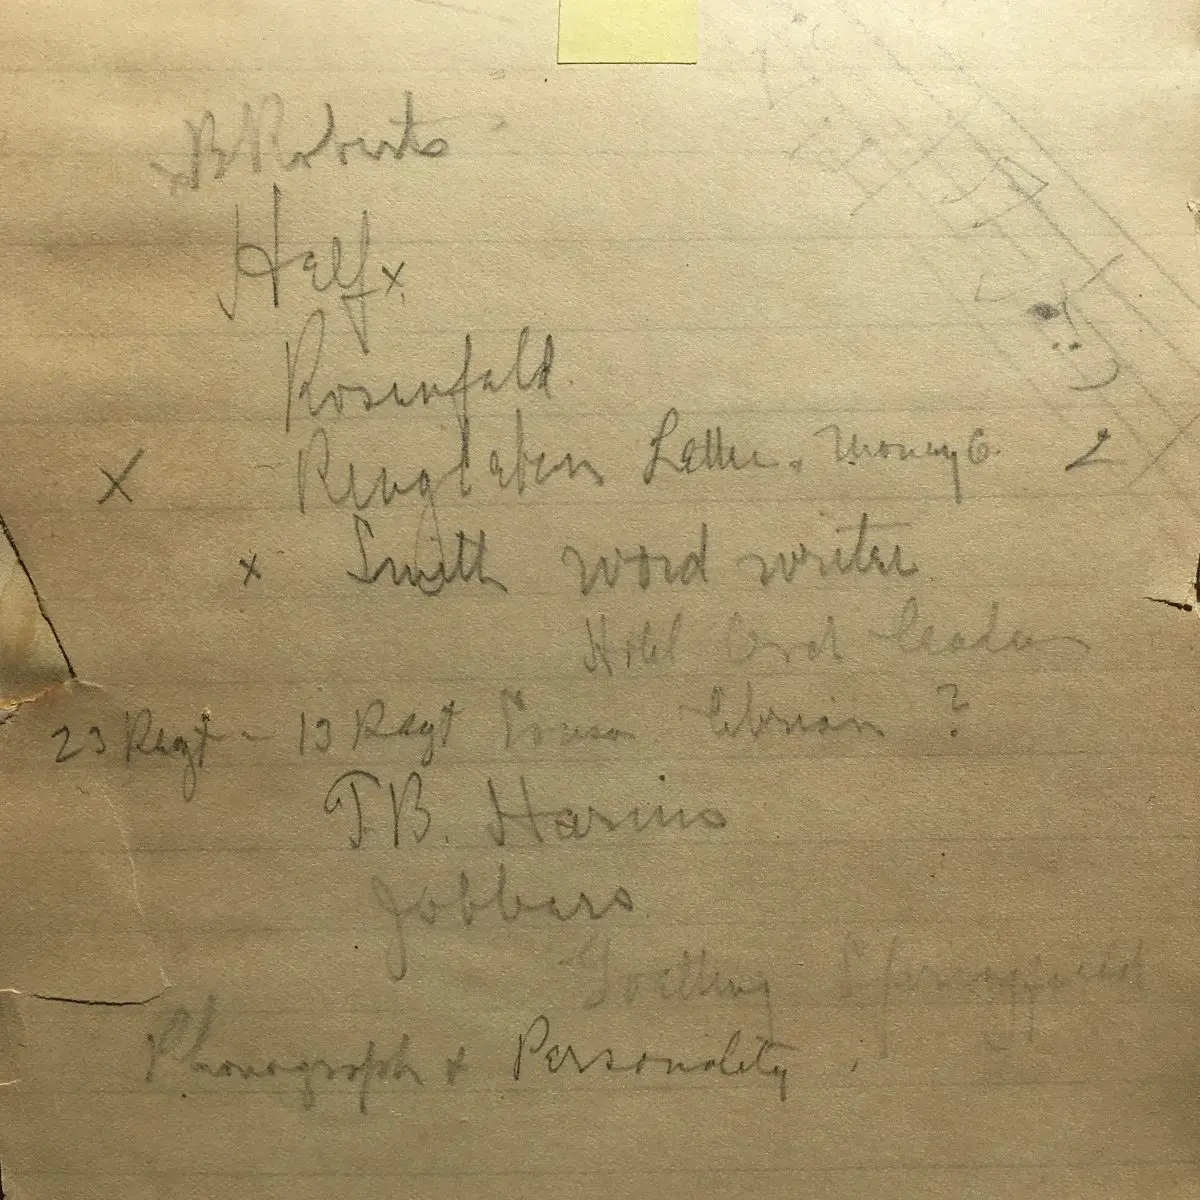 B Roberts
Half x
Rosenfeld.
x Ringleben Letter. Money 6. 2
x Smith word writer
Hotel Card Leader
23 Regt - 13 Regt Sousa ?
T.B. Harms
Jobbers
Goetting Springfield
Phonograph & Personality.